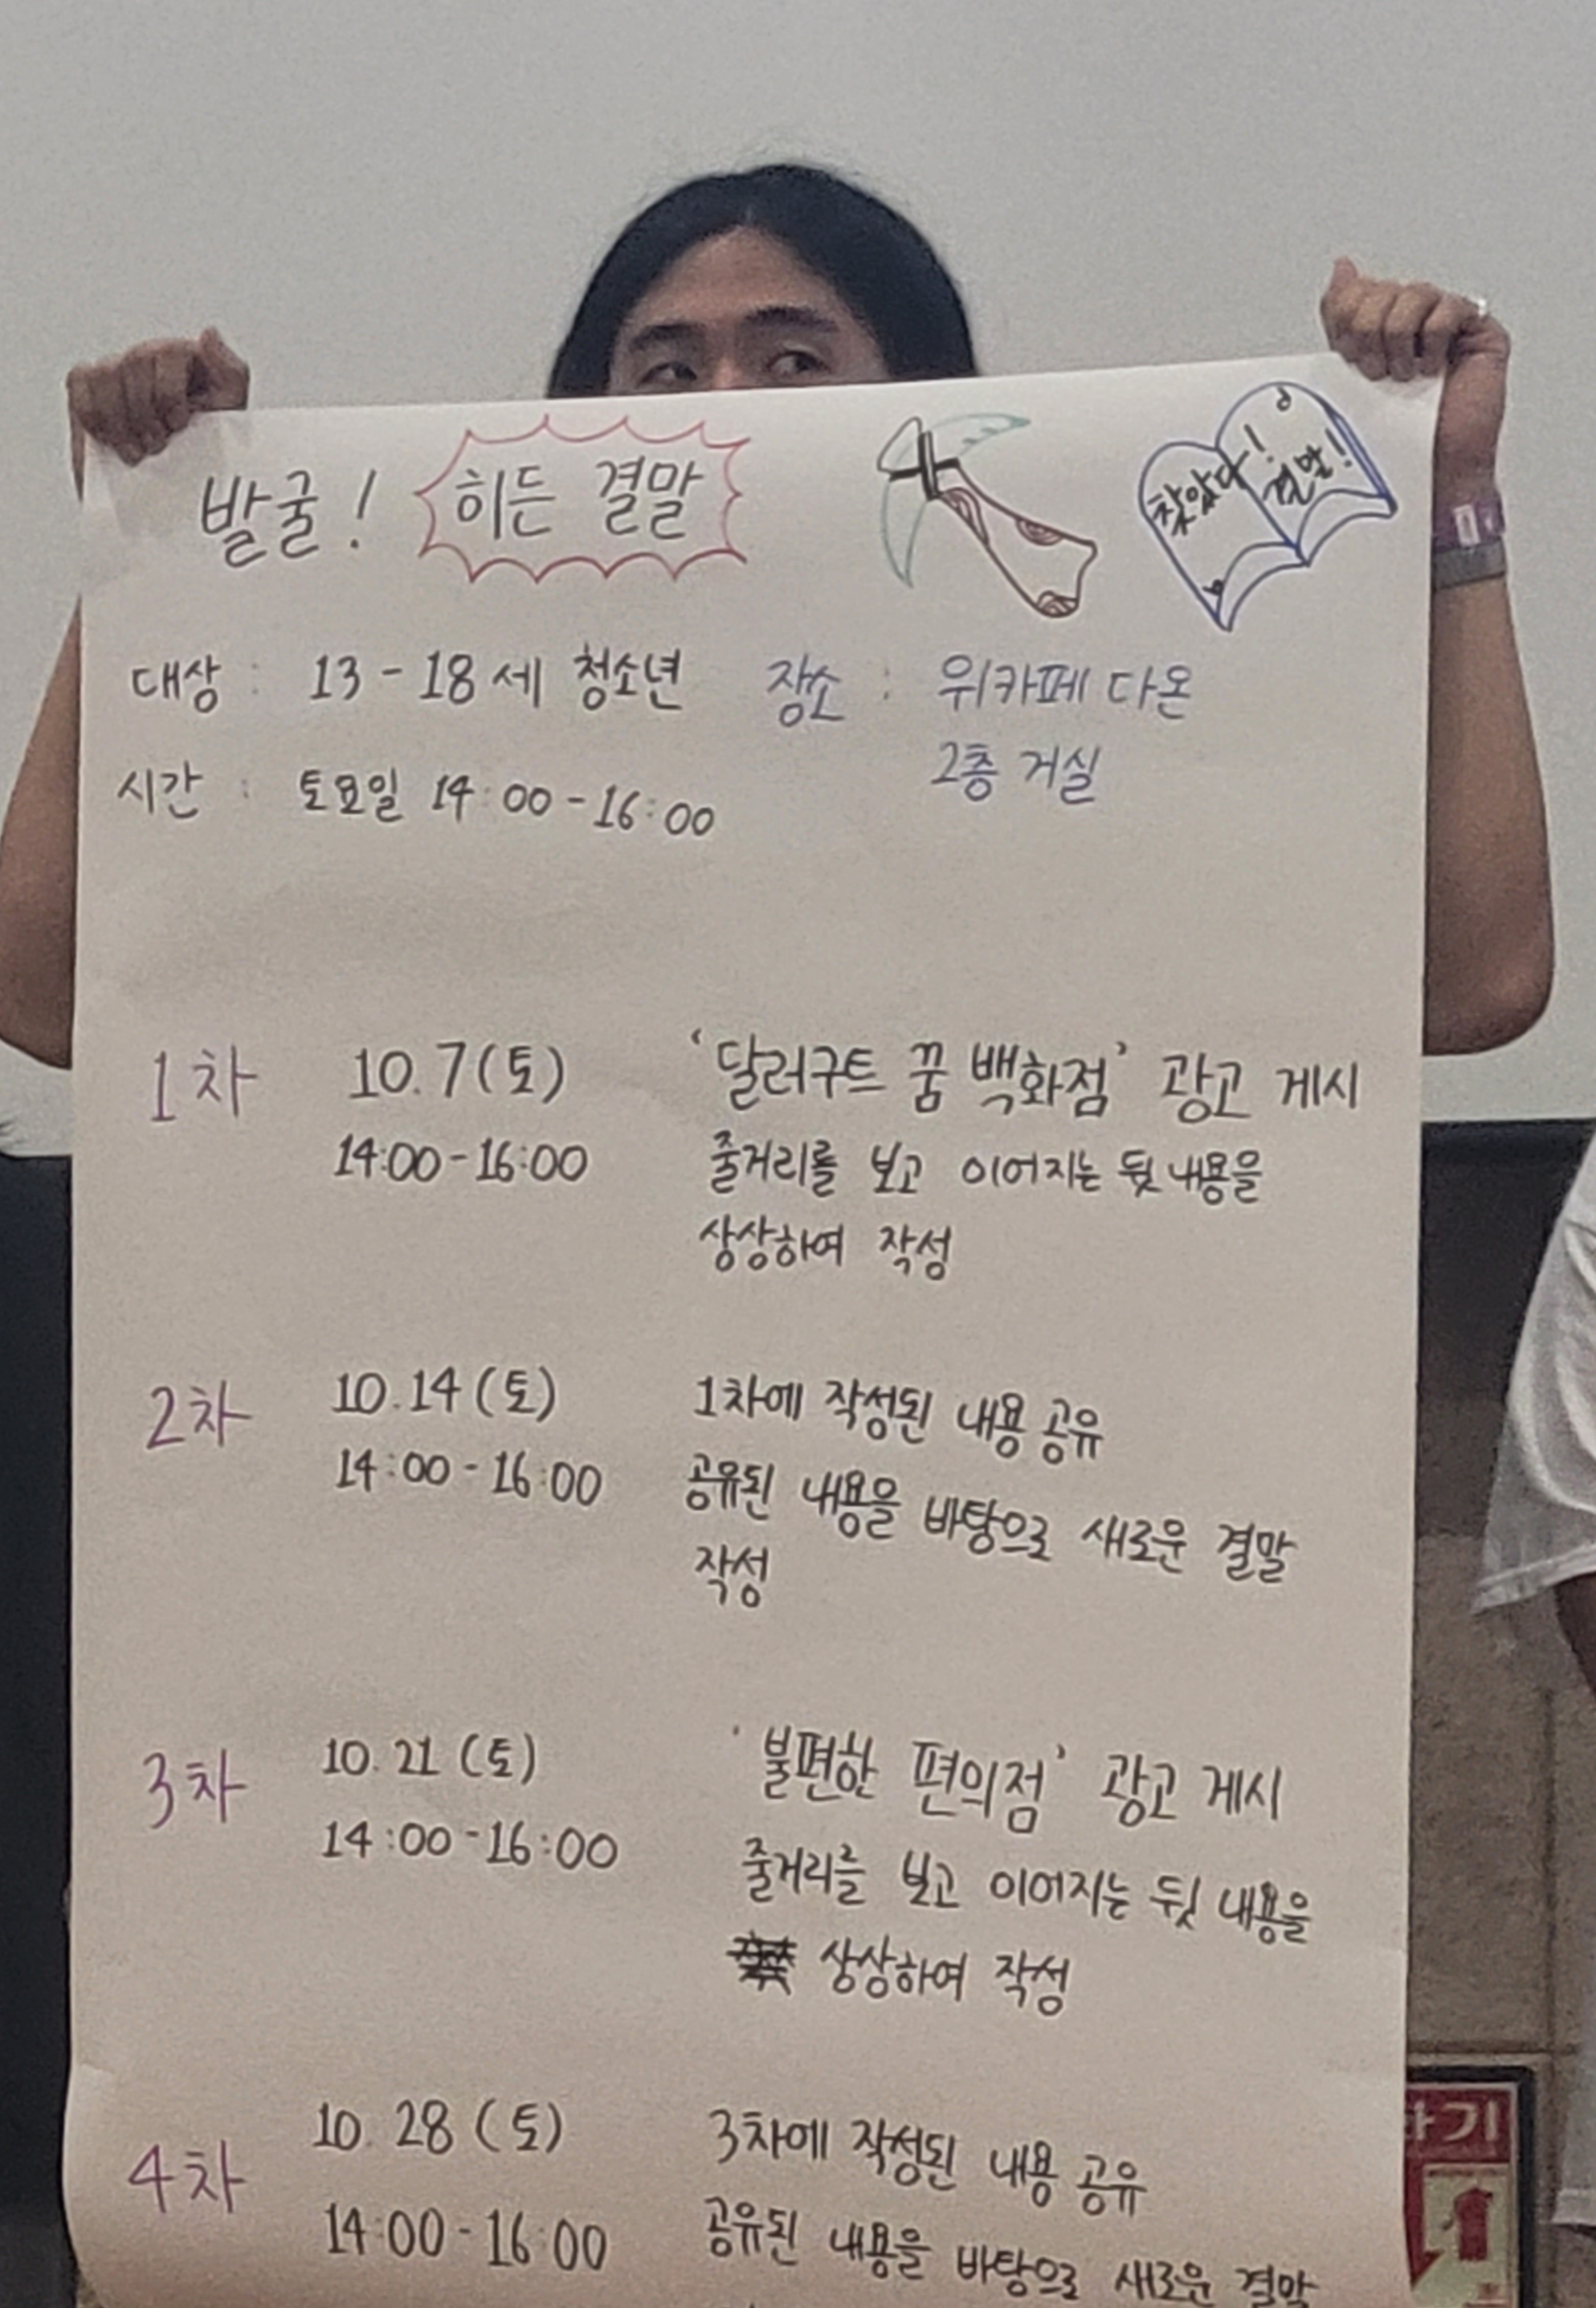 발굴! 히든 결말
찾았다! 결말!
대상 : 13-18세 청소년
장소 : 위카페 다온
2층 거실
시간 : 토요일 14:00-16:00
1차 10.7(토) '달러구트 꿈 백화점' 광고 게시
14:00-16:00 줄거리를 보고 이어지는 뒷 내용을
상상하여 작성
2차 10.14(토) 1차에 작성된 내용 공유
14:00-16:00 공유된 내용을 바탕으로 새로운 결말
작성
3차 10.21(토) '불편한 편의점' 광고 게시
14:00-16:00 줄거리를 보고 이어지는 뒷 내용을
상상하여 작성
4차 10.28(토) 3차에 작성된 내용 공유
14:00-16:00 공유된 내용을 바탕으로 새로운 결말